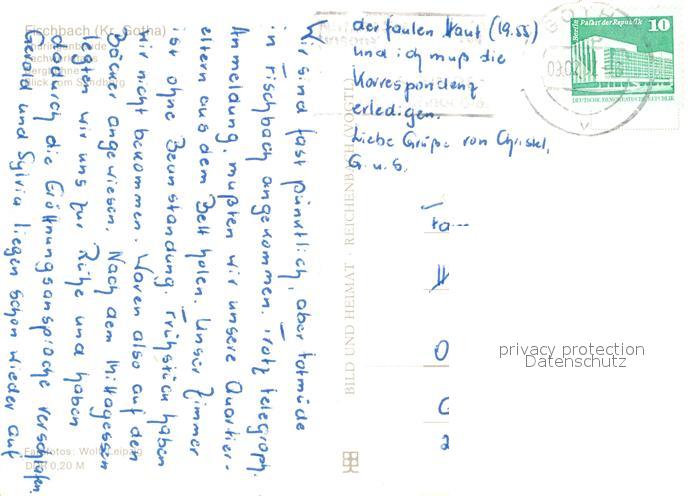 Fischbach (Kr. Gotha)
Thüringenbaude
Fachwerkhaus
Bergbühne
Blick vom Sandberg
Wir sind fast pünktlich, aber totmüde
in Fischbach angekommen. Trotz telegraph.
Anmeldung, mußten wir unsere Quartier-
eltern aus dem Bett holen. Unser Zimmer
ist ohne Beanstandung. Frühstück haben
wir nicht bekommen. Waren also auf den
Bäcker angewiesen. Nach dem Mittagessen
legten wir uns zur Ruhe und haben
dadurch die Eröffnungsansprache verschlafen.
Gerald und Sylvia liegen schon wieder auf
der faulen Haut (19.55)
und ich muß die
Korrespondenz
erledigen.
Liebe Grüße von Christel,
G. u. S.
BILD UND HEIMAT · REICHENBACH (VOGTL)
Berlin, Palast der Republik
10
DEUTSCHE DEMOKRATISCHE REPUBLIK
privacy protection
Datenschutz
Farbfotos: Wolf, Leipzig
DDR 0,20 M